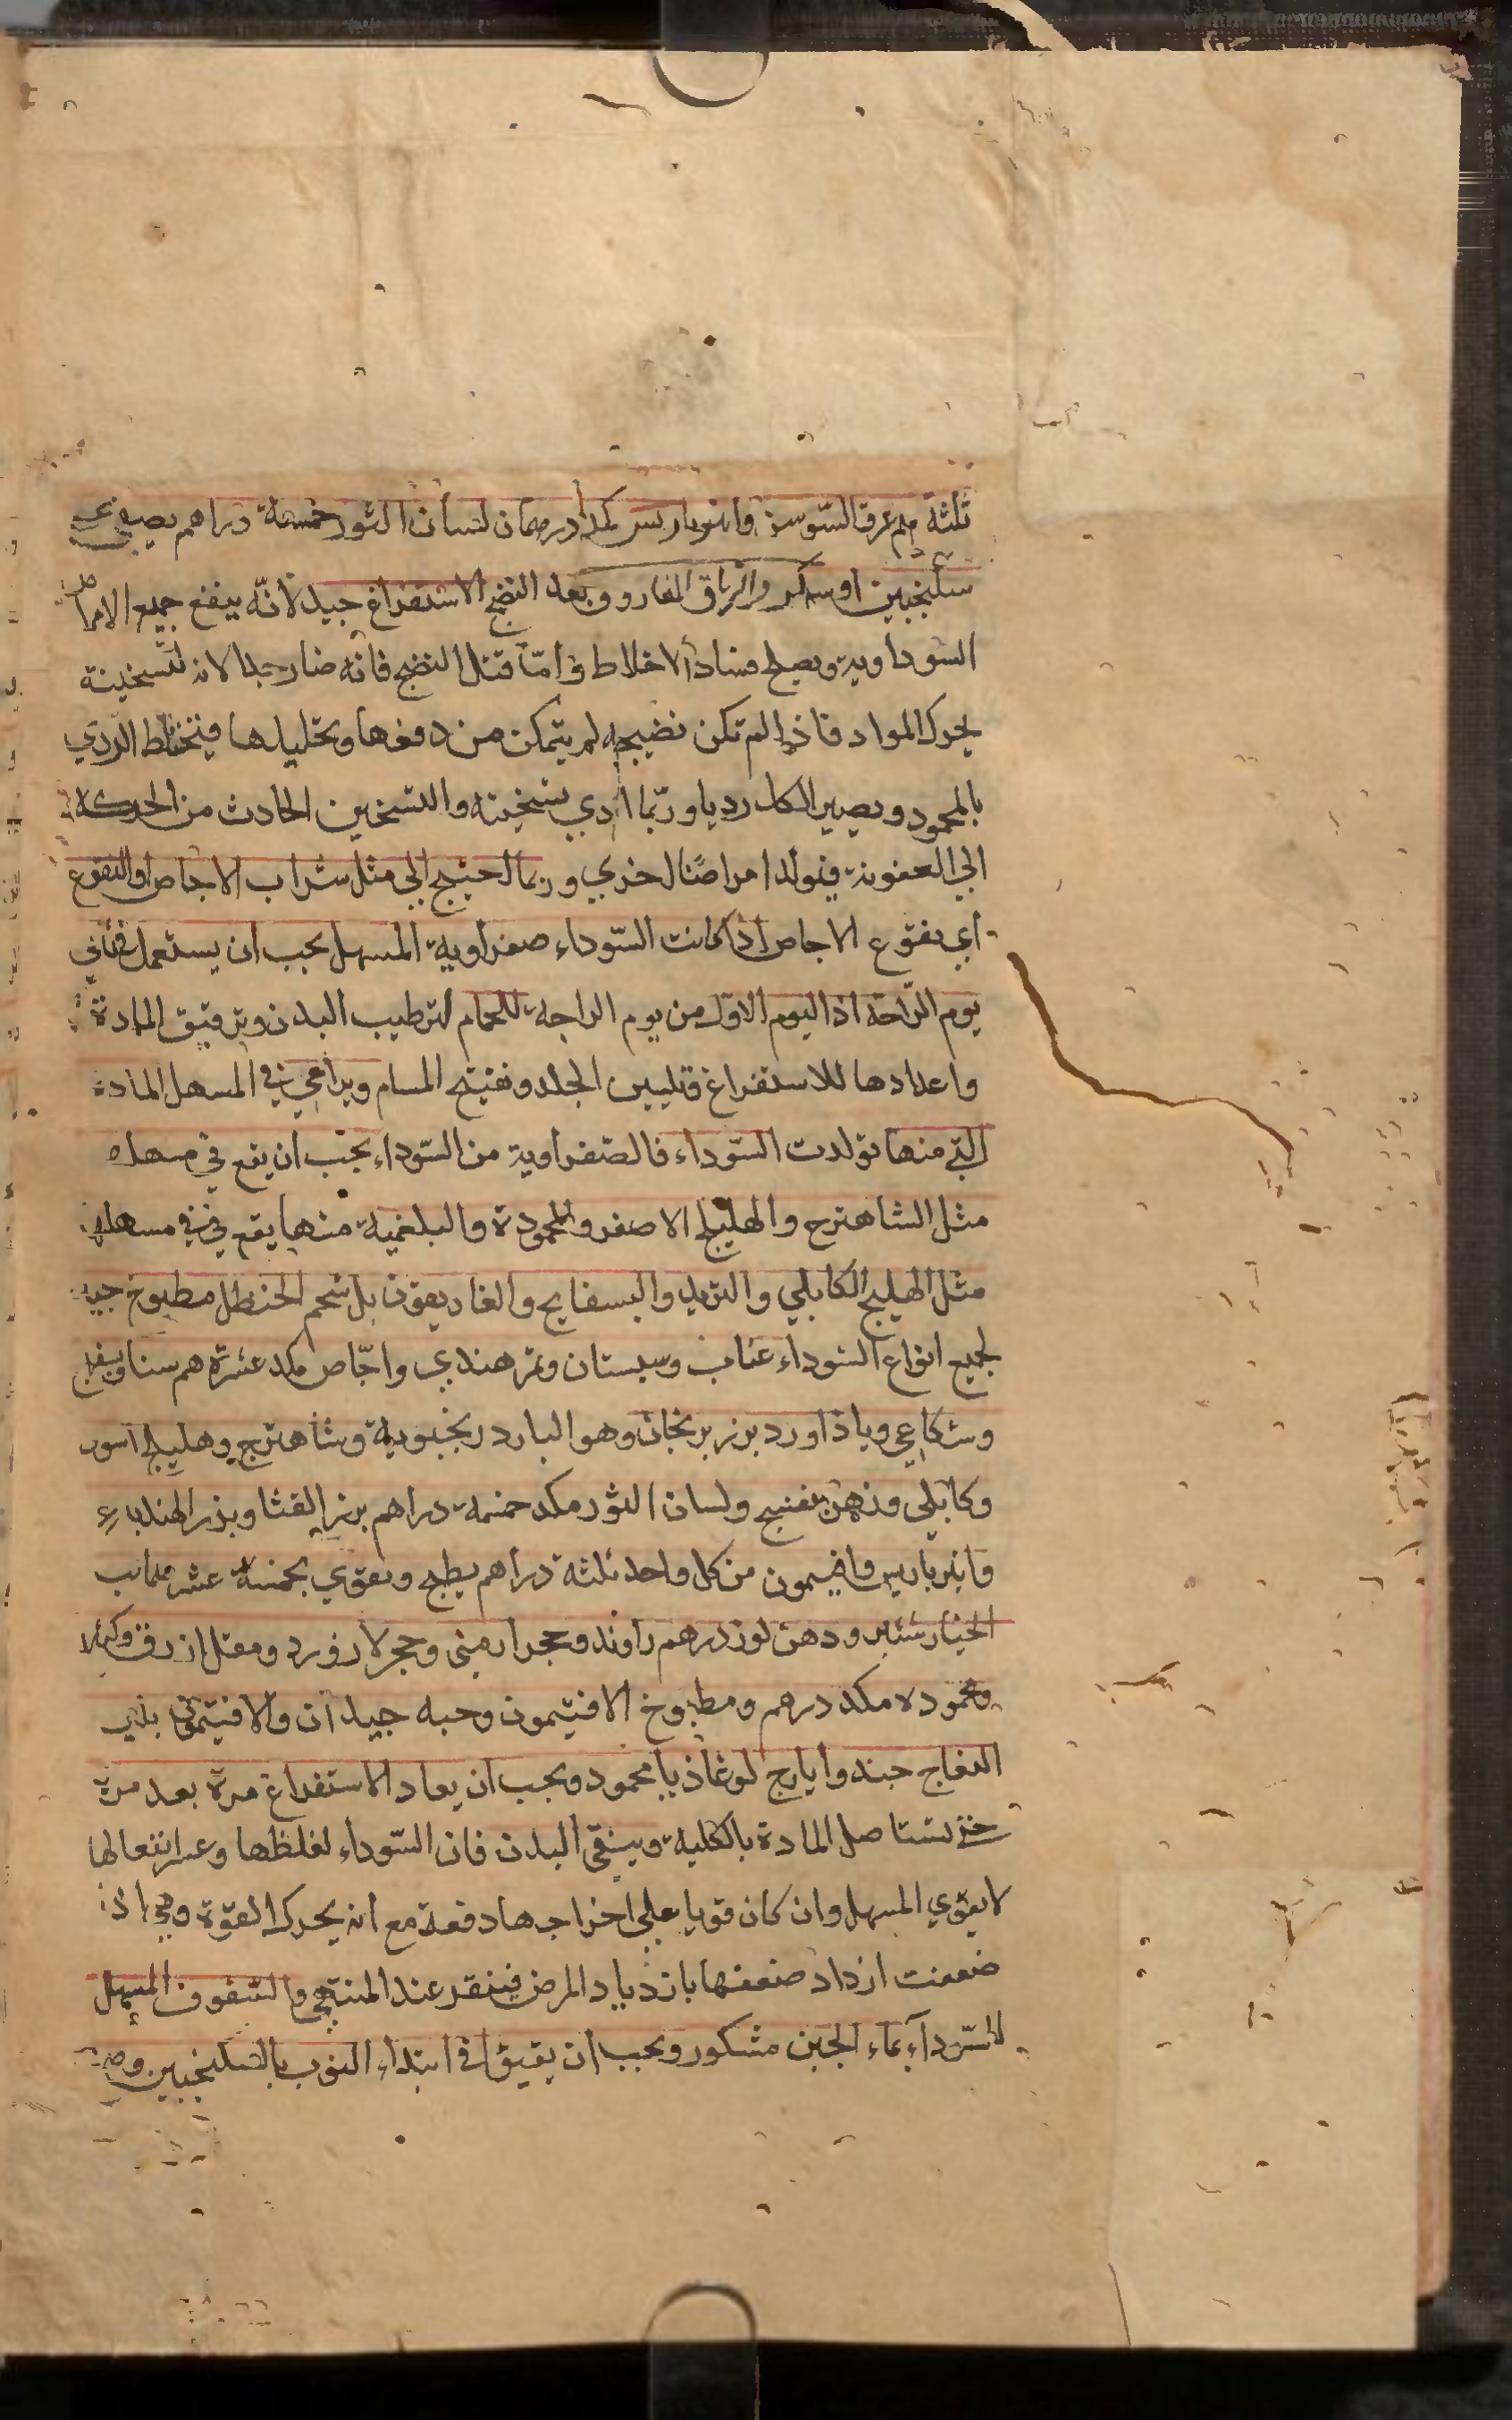 ثلثة دراهم عرق السوسن وانبرباريس مكد درهمان لسان الثور خمسة دراهم يصفي علي
سكنجبين او سكر والترياق الفاروق بعد النضج الاستفراغ جيد لانّه ينفع جميع الامراض
السوداوية ويصلح فساد الاخلاط وامّا قبل النضج فانه ضار جدا لانه لتسخينه
يحرك المواد فاذا لم تكن نضيجه لم يتمكن من دفعها وتحليلها فيختلط الردي
بالمحمود ويصير الكل رديا وربّما ادي تسخينه والتسخين الحادث من الحركة
الي العفونة فيولد امراضًا اخري وربما احتيج الي مثل شراب الاجاص او النقوع
اي نقوع الاجاص اذا كانت السّوداء صفراوية المسهل يجب ان يستعمل في ثاني
يوم الرّاحة اذا اليوم الاول من يوم الراحة للحمام لترطيب البدن وترقيق المادة
واعدادها للاستفراغ وتليين الجلد وتفتيح المسام ويراعي في المسهل المادة
التي منها تولدت السّوداء فالصفراوية من السّوداء يجب ان يقع في مسهله
مثل الشاهترج والهليلج الاصفر والمحمودة والبلغمية منها يقع في مسهلها
مثل الهليلج الكابلي والتربد والبسفايج والغاريقون بل شحم الحنظل مطبوخ جيد
لجميع انواع السّوداء عناب وسبستان وتمر هندي واجّاص مكد عشرة هم سنا وبسفايج
وشكاعي وباذاورد بزر برنجان وهو البادرنجبوية وشاهترج وهليلج اسود
وكابلي وزهر بنفسج ولسان الثور مكد خمسة دراهم بزر القثا وبزر الهندباء
وانبرباريس وافتيمون من كل واحد ثلثة دراهم يطبخ ويقوي بخمسة عشر من لب
الخيارشنبر ودهن لوز درهم راوند وحجر ارميني وحجر لازورد ومقل ازرق وكثيرا
ومحموده مكد درهم ومطبوخ الافتيمون وحبه جيدان والافتيمون بلبي
اللقاح جيد وايارج لوغاذيا محمود ويجب ان يعاد الاستفراغ مرة بعد مرة
حتي تستاصل المادة بالكلية وينقي البدن فان السّوداء لغلظها وعسر انفعالها
لا يقوي المسهل وان كان قويا علي اخراجها دفعة مع انه يحرك القوة وهي اذا
ضعفت ازداد ضعفها بازدياد المرض فينقر عند المنتهي والسفوف المسهل
للسّوداء بماء الجبن مشكور ويجب ان يقيؤا في ابتداء النوب بالسكنجبين